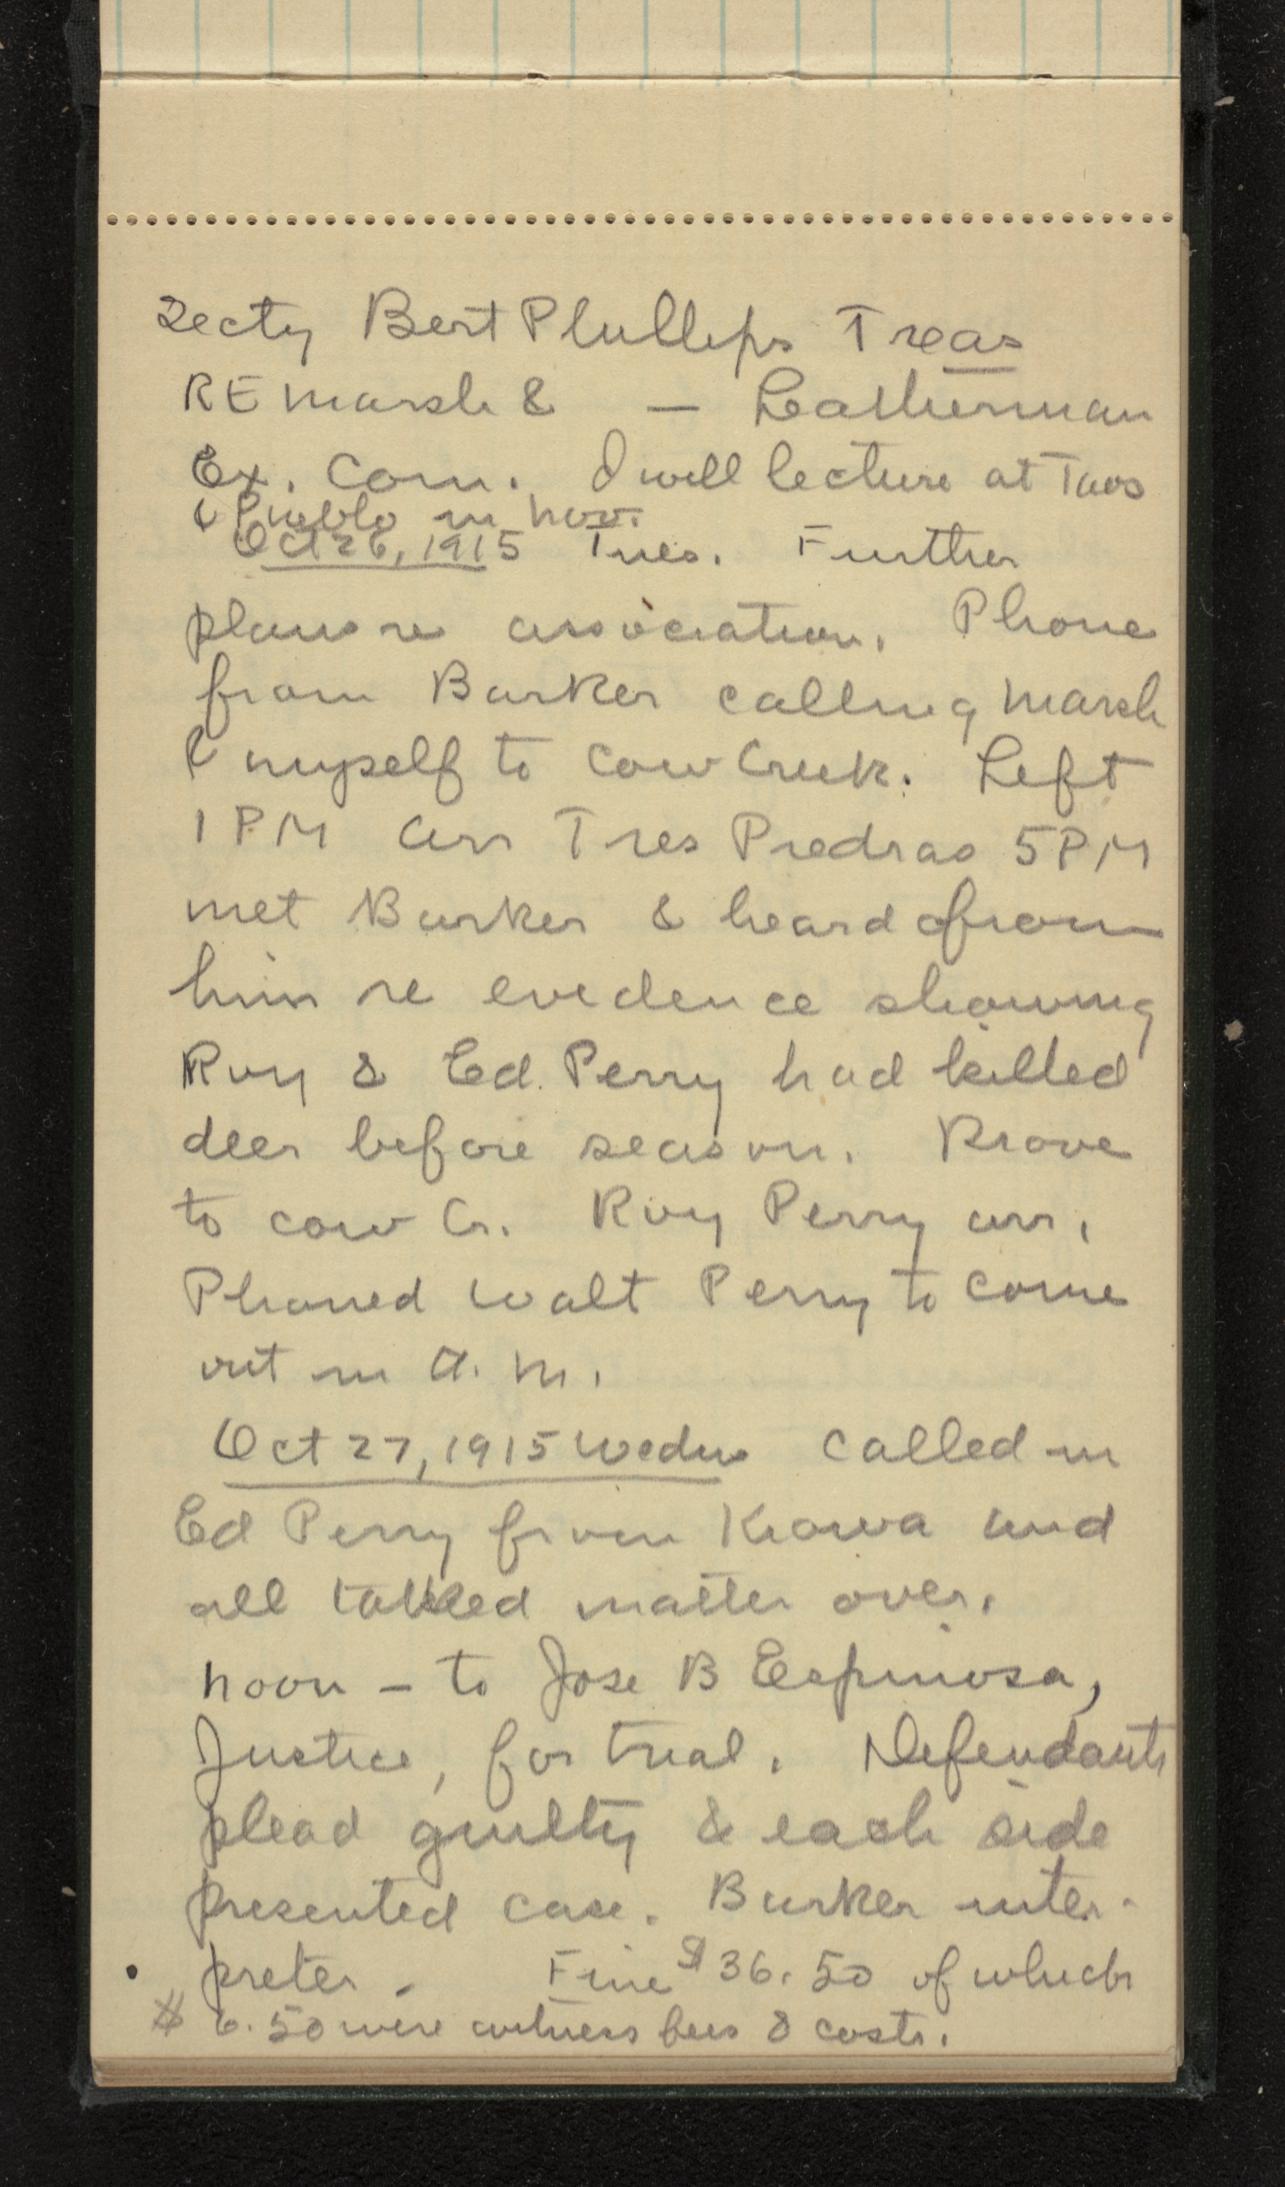 Secty Bert Phillips Treas
RE Marsh & — Leatherman
Ex. Com. I will lecture at Taos
& Pueblo in Nov.
Oct 26, 1915 Tues. Further
plans re association. Phone
from Barker calling Marsh
& myself to Cow Creek. Left
1 PM arr Tres Piedras 5 PM
met Barker & heard from
him re evidence showing
Roy & Ed. Perry had killed
deer before season. Drove
to Cow Cr. Roy Perry arr.
Phoned Walt Perry to come
out in A.M.
Oct 27, 1915 Wedns Called in
Ed Perry from Kiowa and
all talked matter over.
Noon – to Jose B Espinosa,
Justice, for trial. Defendants
plead guilty & each side
presented case. Barker inter-
preter. Fine $36.50 of which
$6.50 were witness fees & costs.